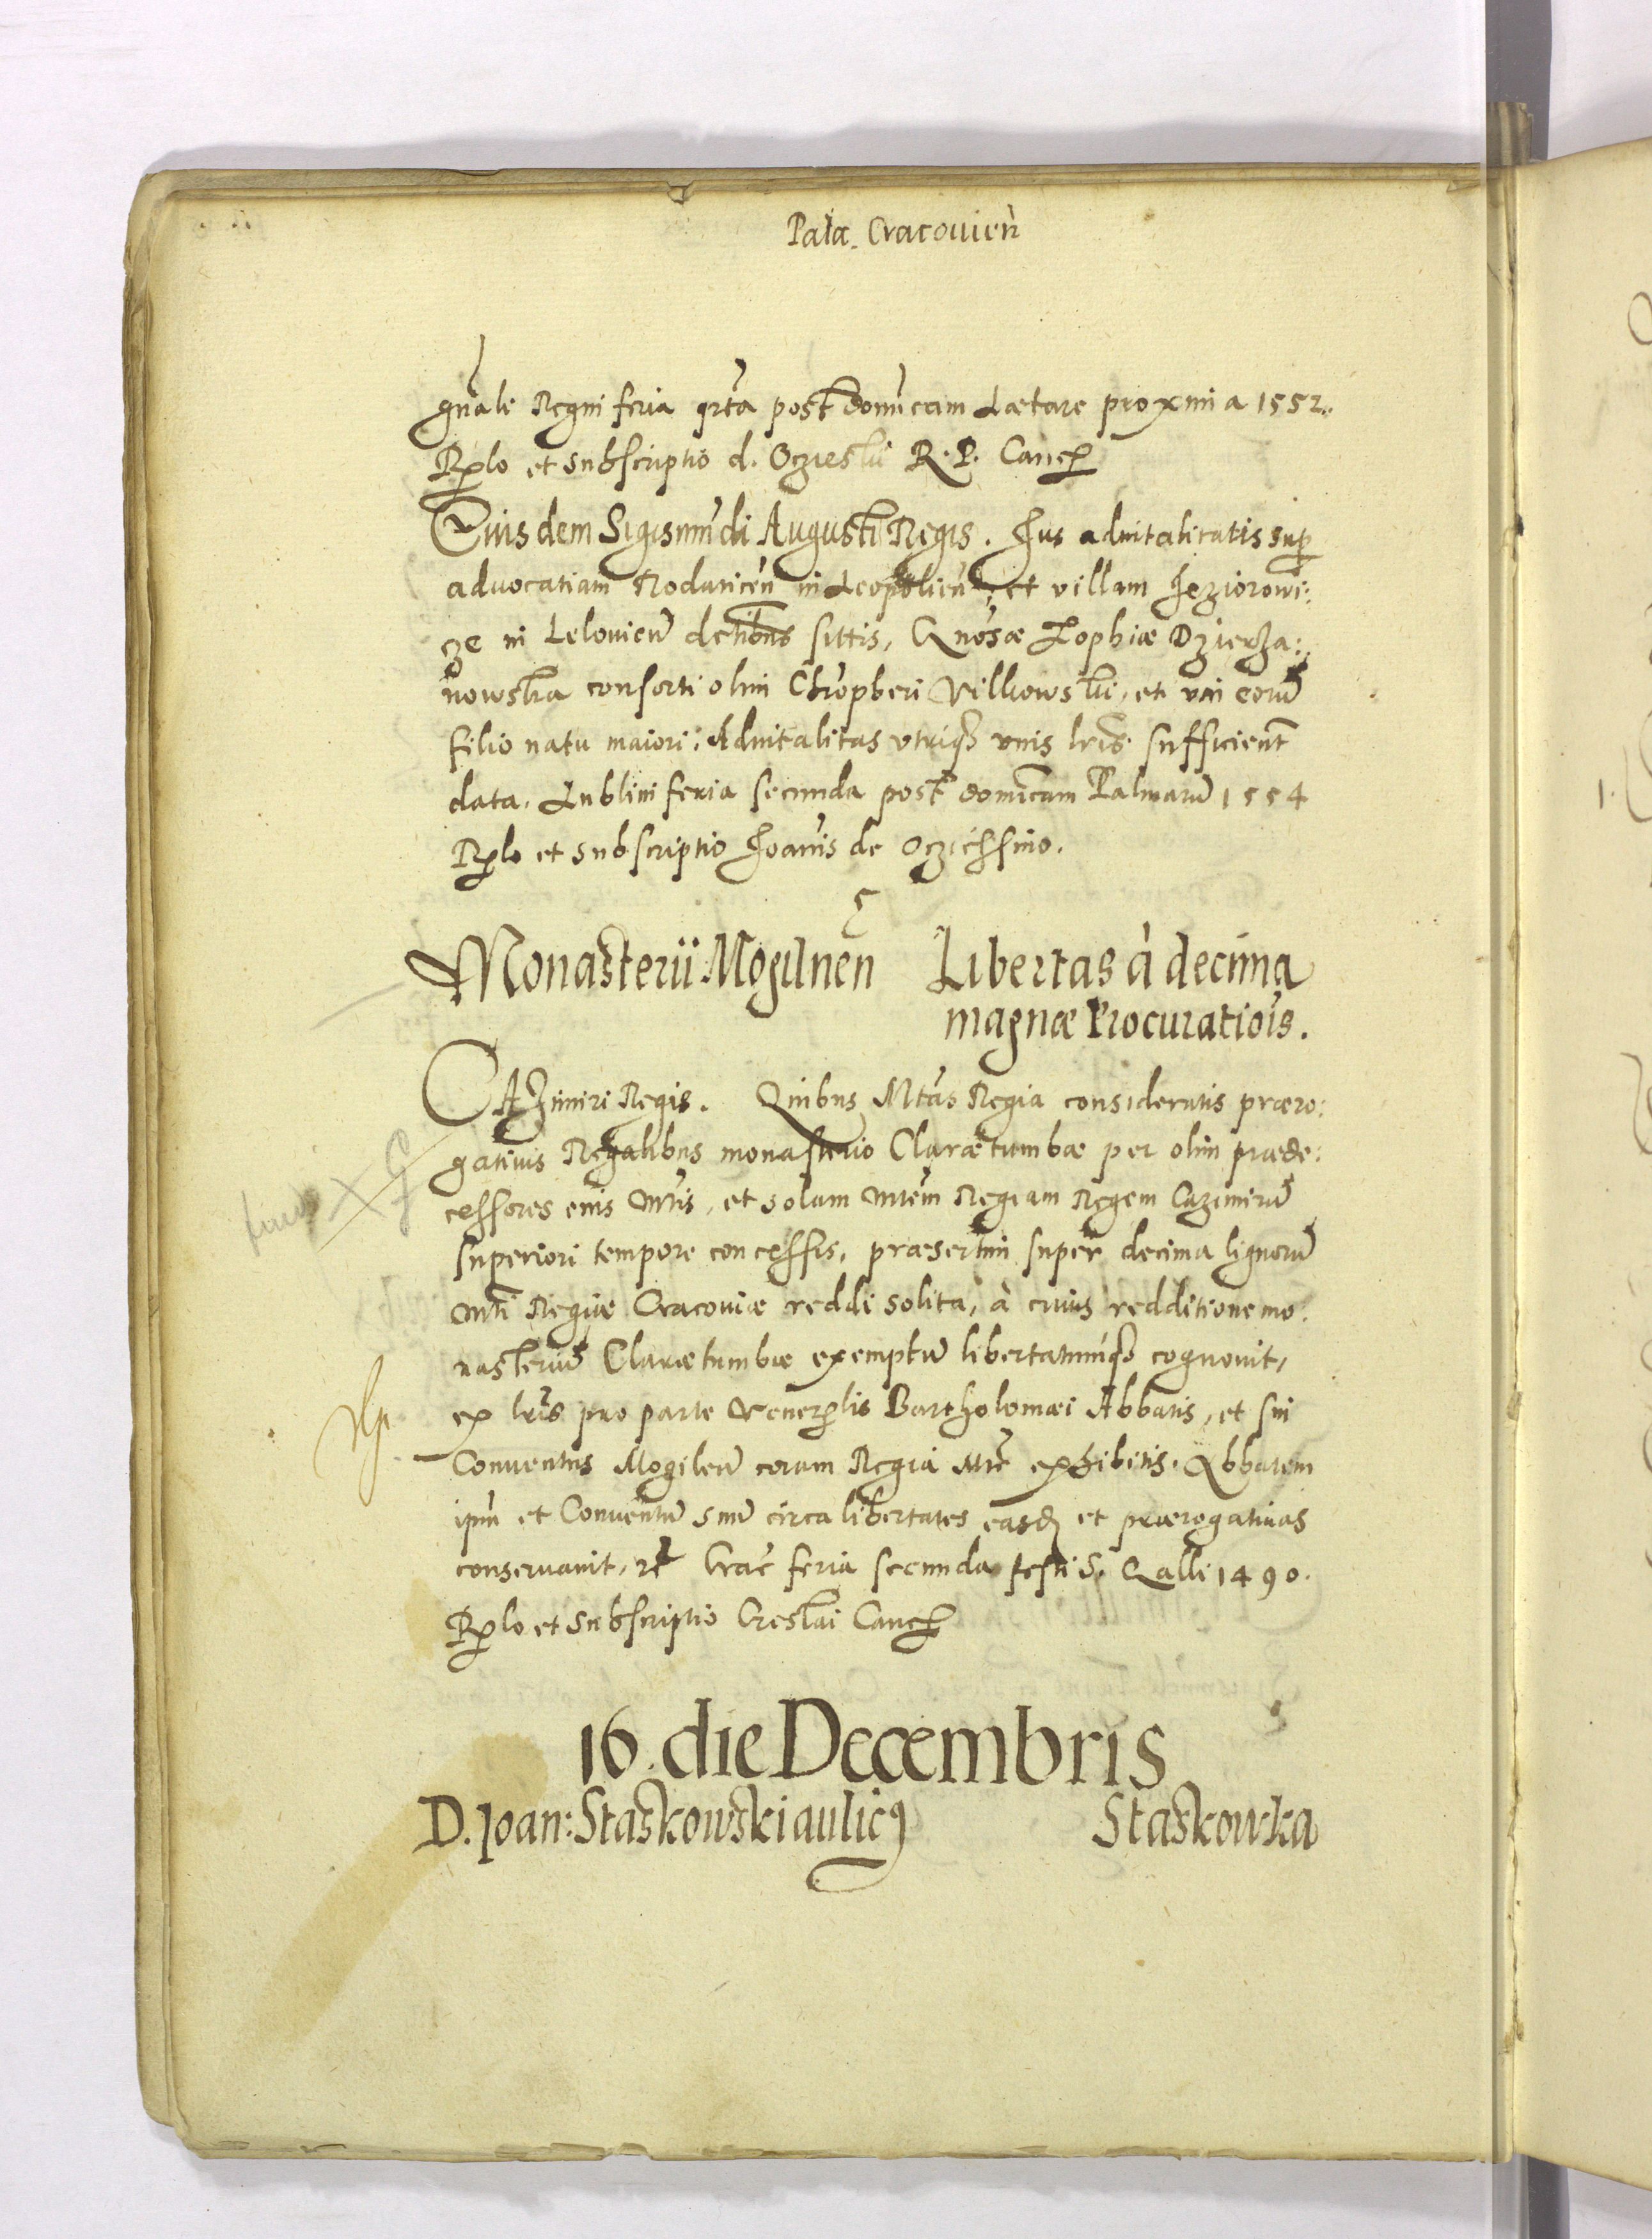 Pala. Cracouien̄
gn̄ale Regni feria qrta post domi̅cam Lætare proxima 1552.
Rp̱lo et subscriptio d. Ocziesky R. P. Canc̱
Eiusdem Sigismu̅di Augusti Regis. Jus aduitalitatis sup̱
aduocatiam Rodaticen̄ in Leopolien̄, et villam Jeziorowi:
cze in Lelouien̄ de̅tibus sittis, Gn̄osæ Zophiæ Dzierża:
nowska consorti olim Chr̅opheri Vilkowski, et vni eoru̅
filio natu maiori: Aduitalitas vtriq3 vnis lr̅is sufficient̄
data. Lublini feria secunda post domi̅cam Palmaru̅ 1554
Rp̱lo et subscriptio Joan̅is de Oczessino.
Monasterii Mogilnen̄ Libertas à decima
magnæ Procuratio̅is.
CAZimiri Regis. Quibus Mtās Regia consideratis præro:
gatiuis Regalibus monasterio Claræ tumbæ per olim præde:
cessores eius Mtis, et solam Mtem Regiam Regem Cazimiru̅
superiori tempore concessis, præsertim super decima lignoru̅
Mti Regiæ Cracouiæ reddi solita, à cuius redditione mo:
nasteriu̅ Claræ tumbæ exemptu̅ libertatumq3 cognouit,
ex lr̅is pro parte Venerp̱lis Bartholomæi Abbatis, et sui
Conuentus Mogilen̄ coram Regia Mte exhibitis. Abbatem
ipm̄ et Conuentu̅ suu̅ circa libertates easdꝫ et prærogatiuas
conseruauit, etc Crac̄ feria secunda festi S. Galli 1490.
Rp̱lo et subscriptio Creslai Canc̱
16. die Decembris
D. Joan: Staskowski aulicꝰ Staskowka